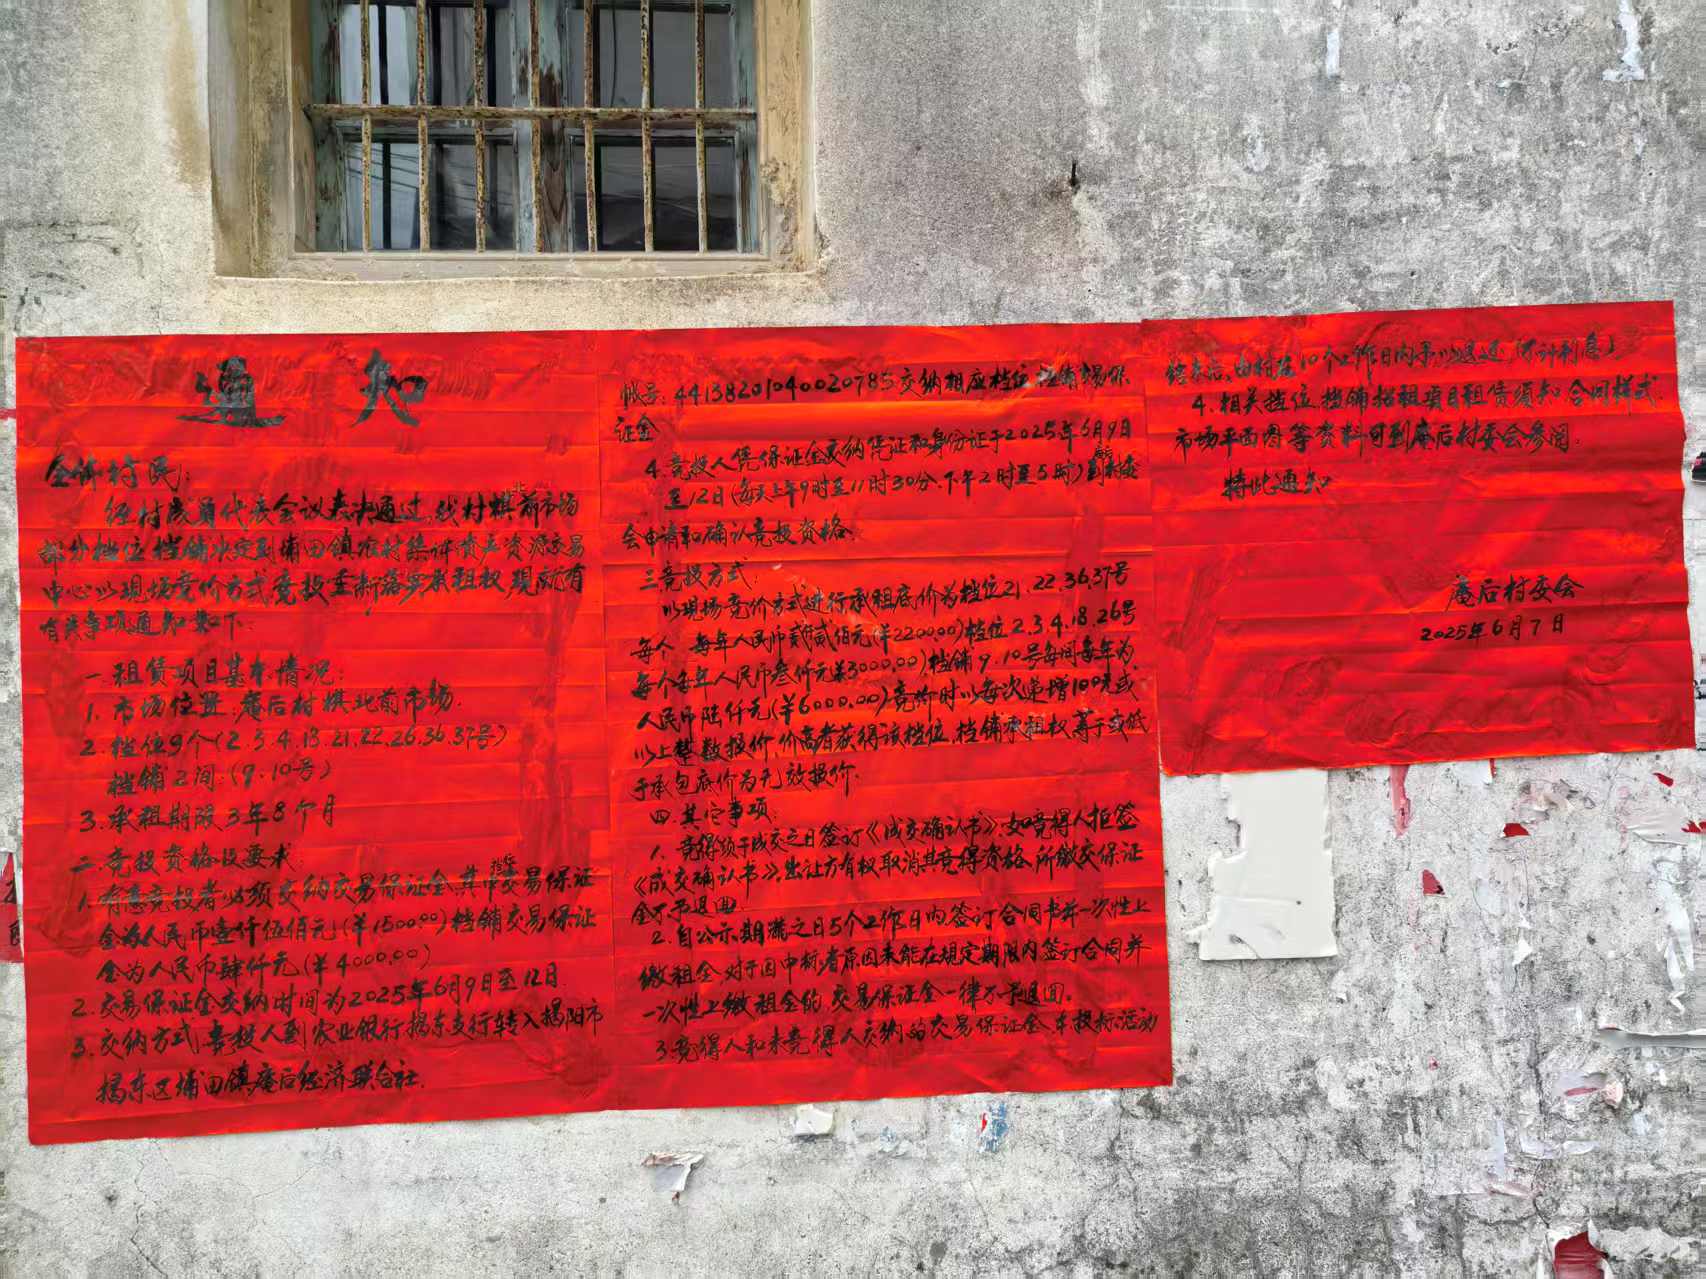 通知
全体村民:
经村成员代表会议表决通过,我村棋北前市场
部分档位、档铺决定到埔田镇农村集体资产资源交易
中心以现场竞价方式竞投重新落实承租权,现就有
有关事项通知如下:
一.租赁项目基本情况:
1.市场位置:庵后村棋北前市场.
2.档位9个(2.3.4.18.21.22.26.36.37号)
档铺2间:(9.10号)
3.承租期限3年8个月
二.竞投资格及要求:
1.有意竞投者必须交纳交易保证金,其中档位交易保证
金为人民币壹仟伍佰元(¥1500.00)档铺交易保证
金为人民币肆仟元(¥4000.00)
2.交易保证金交纳时间为2025年6月9日至12日.
3.交纳方式:竞投人到农业银行揭东支行转入揭阳市
揭东区埔田镇庵后经济联合社.
帐号:44138201040020785交纳相应档位、档铺交易保
证金
4.竞投人凭保证金交纳凭证和身份证于2025年6月9日
至12日(每天上午9时至11时30分.下午2时至5时)到庵后村委
会申请和确认竞投资格.
三.竞投方式:
以现场竞价方式进行承租底价为档位21.22.36.37号
每个 每年人民币贰仟贰佰元(¥2200.00)档位2.3.4.18.26号
每个每年人民币叁仟元(¥3000.00)档铺9.10号每间每年为
人民币陆仟元(¥6000.00)竞价时以每次递增100元或
以上整数报价,价高者获得该档位、档铺承租权,等于或低
于承包底价为无效报价.
四.其它事项:
1.竞得须于成交之日签订《成交确认书》,如竞得人拒签
《成交确认书》,出让方有权取消其竞得资格,所缴交保证
金不予退回.
2.自公示期满之日5个工作日内签订合同书并一次性上
缴租金,对于因中标者原因未能在规定期限内签订合同并
一次性上缴租金的,交易保证金一律不予退回。
3.竞得人和未竞得人交纳的交易保证金,在投标活动
结束后,由村在10个工作日内予以退还(不计利息)
4.相关档位、档铺招租项目租赁须知、合同样式
市场平面图等资料可到庵后村委会参阅.
特此通知
庵后村委会
2025年6月7日